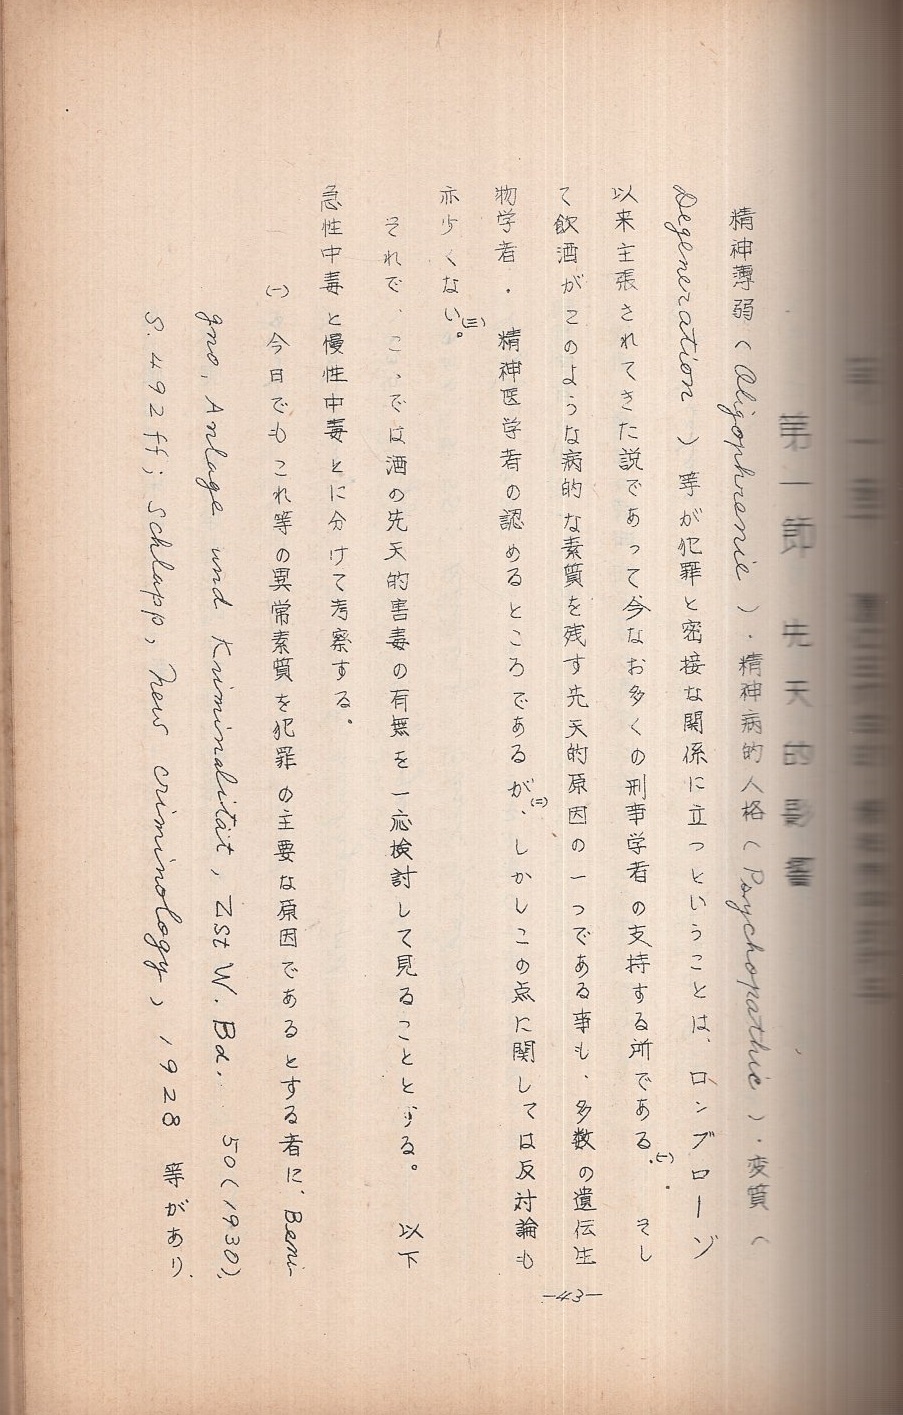 第一節　先天的影響
精神薄弱（Oligophrenie）・精神病的人格（Psychopathie）・変質（
Degeneration）等が犯罪と密接な関係に立つということは、ロンブローゾ
以来主張されてきた説であって今なお多くの刑事学者の支持する所である。(一)　そし
て飲酒がこのような病的な素質を残す先天的原因の一つである事も、多数の遺伝生
物学者・精神医学者の認めるところであるが、(二)しかしこの点に関しては反対論も
亦少くない。(三)
それで、こゝでは酒の先天的害毒の有無を一応検討して見ることとする。　以下
急性中毒と慢性中毒とに分けて考察する。
(一)　今日でもこれ等の異常素質を犯罪の主要な原因であるとする者に、Beni-
gno, Anlage und Kriminalität, ZstW. Bd. 50(1930),
S. 492ff; Schlapp, New criminology, 1928 等があり、
—43—